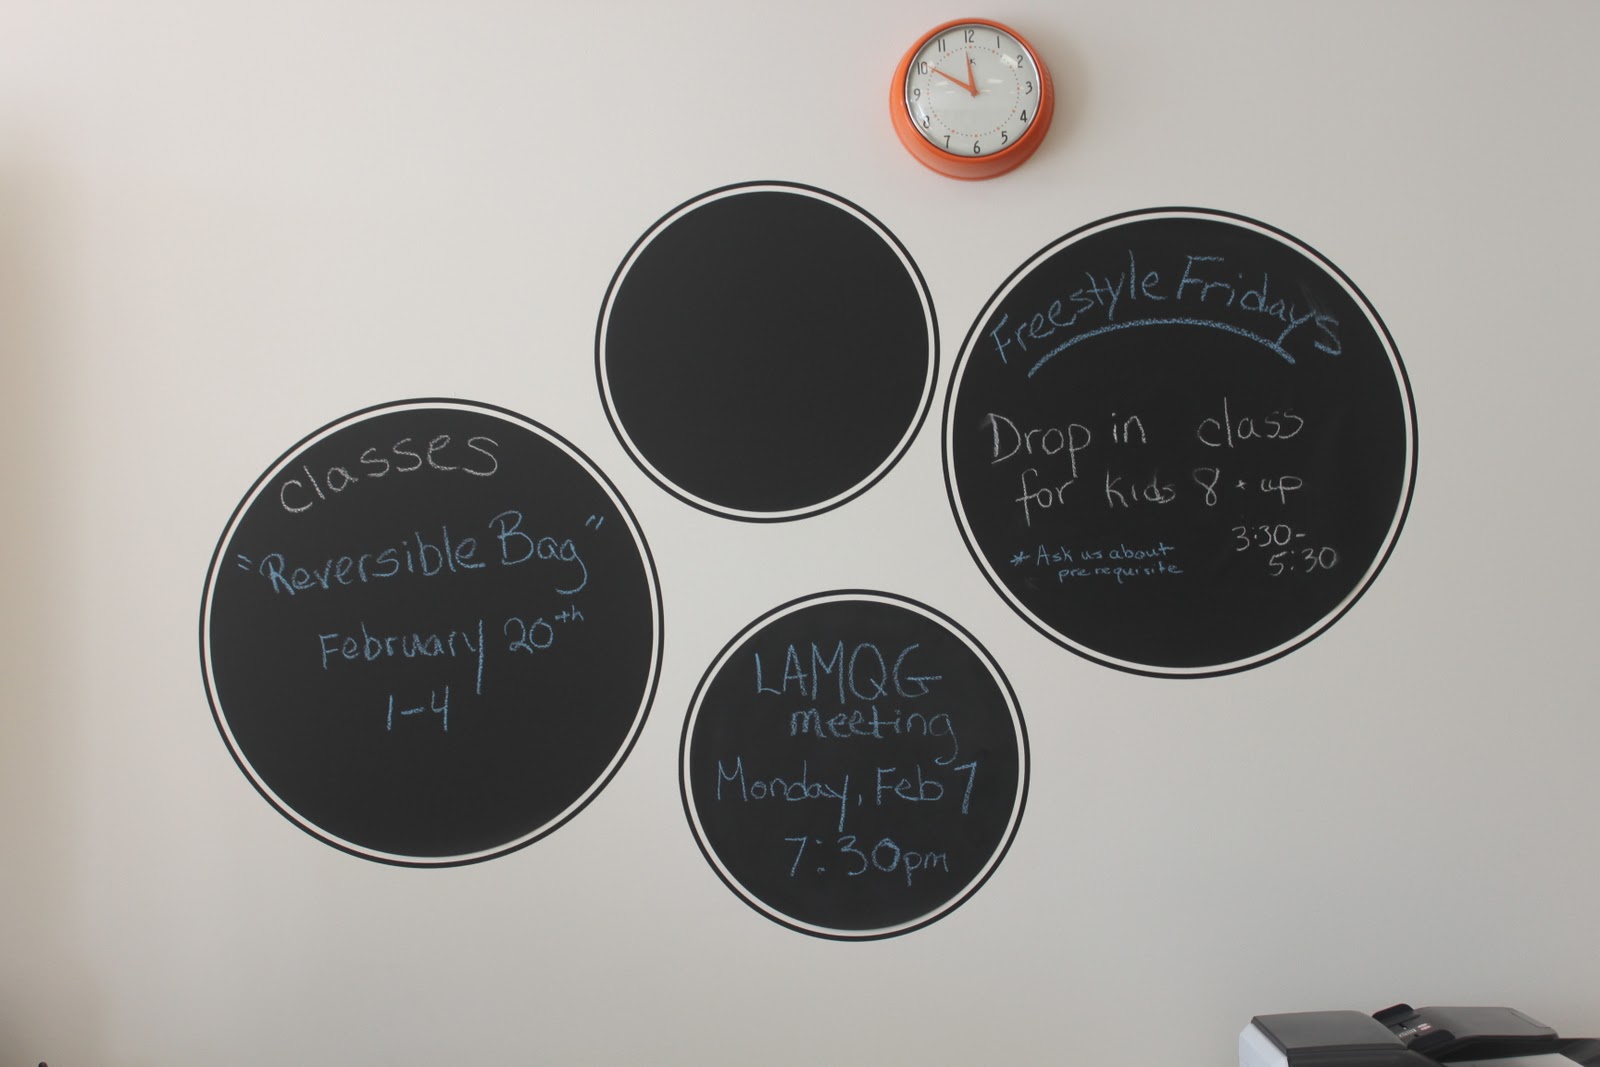 12
1
2
3
4
5
6
7
8
9
10
11
Freestyle Fridays
Drop in class
for kids 8 + up
3:30-
5:30
* Ask us about
prerequisite
classes
"Reversible Bag"
February 20th
1-4
LAMQG
meeting
Monday, Feb 7
7:30pm